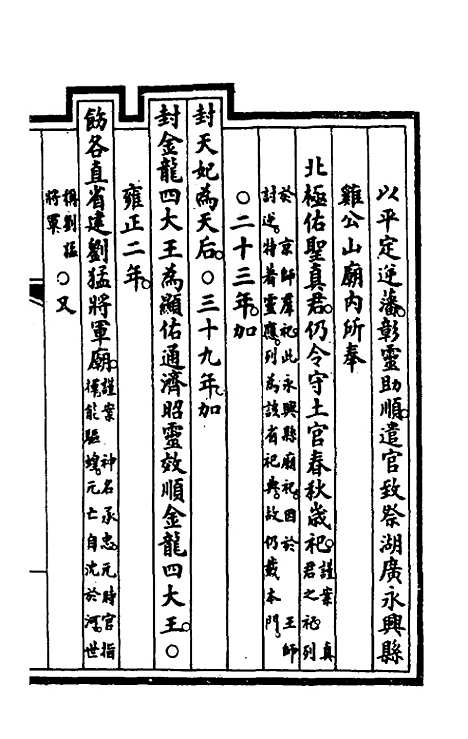 以平定逆藩彰靈助順遣官致祭湖廣永興縣
雞公山廟內所奉
北極佑聖真君仍令守土官春秋歲祀謹案 真
君之祀列
於 京師羣祀此永興縣廟祀因於 王師
討逆特著靈應列為該省祀典故仍載本門
○二十三年加
封天妃為天后○三十九年加
封金龍四大王為顯佑通濟昭靈效順金龍四大王○
雍正二年
飭各直省建劉猛將軍廟謹案 神名承忠元時官指
揮能驅蝗元亡自沈於河世
稱劉猛
將軍 ○又